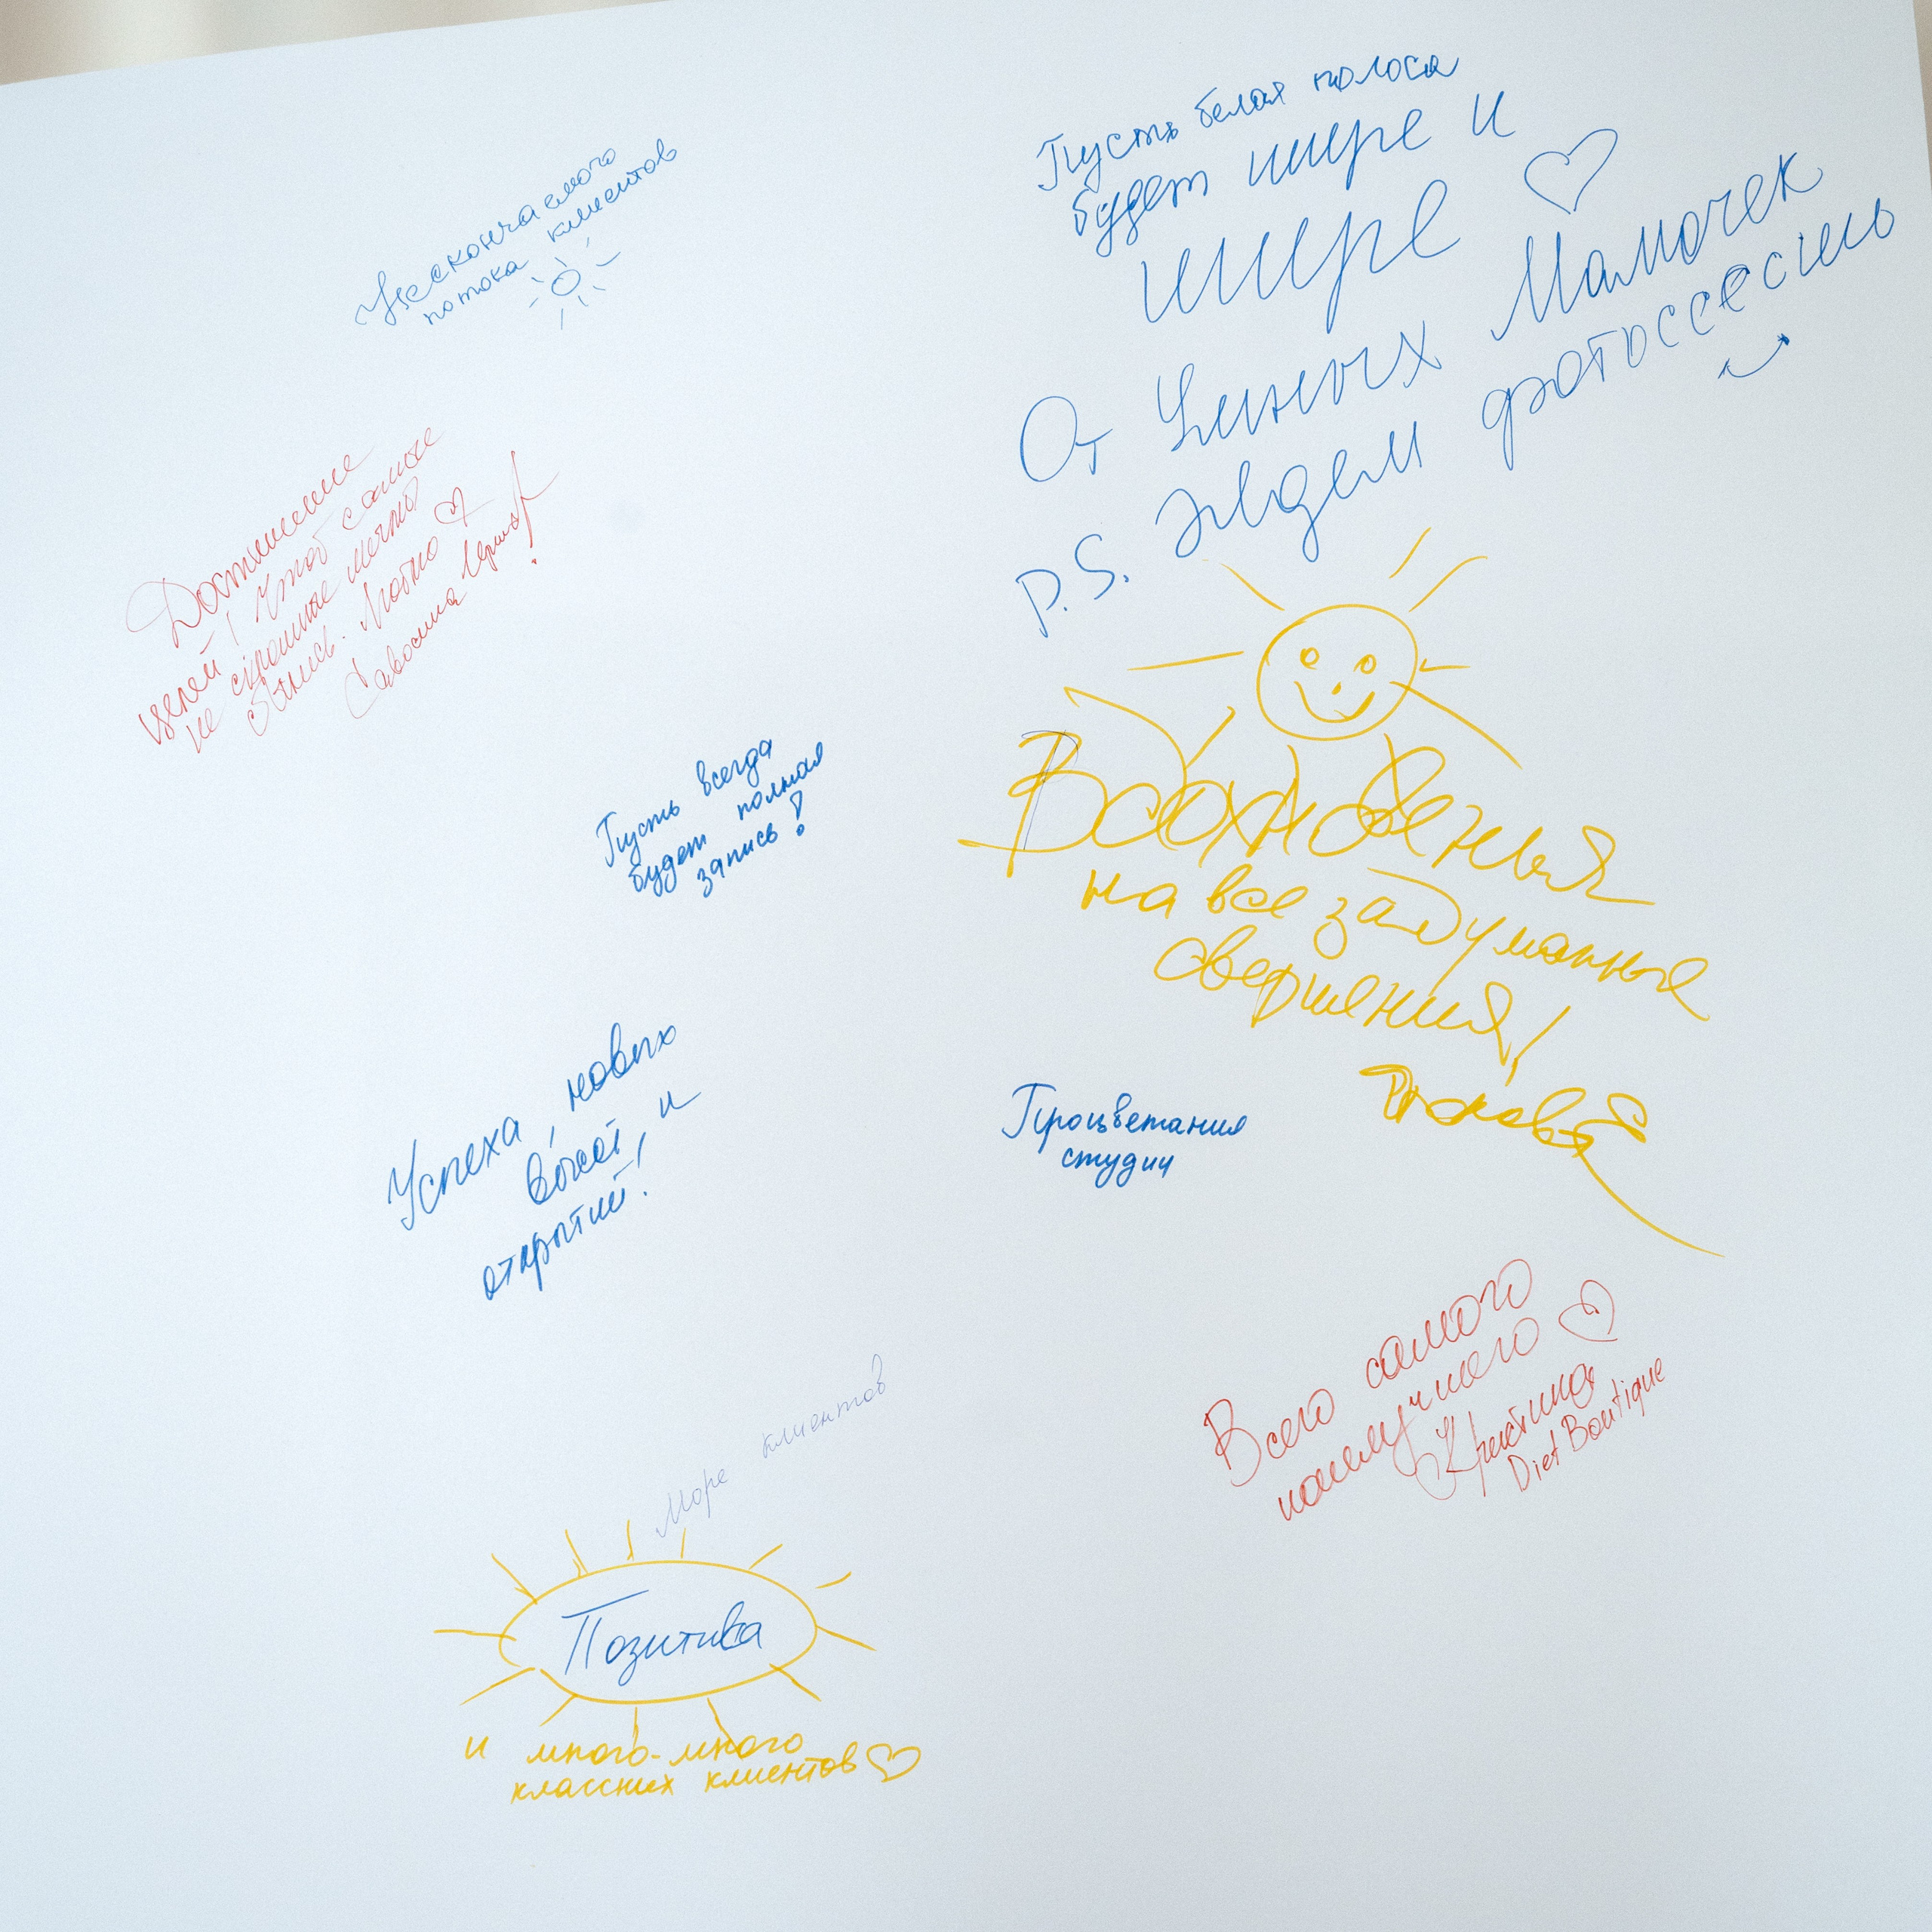 Нескончаемого
потока клиентов
Достижение
целей! Чтоб самые
не скромные мечты
сбылись. Люблю
Савосина
Пусть всегда
будет полная
запись!
Успеха, новых
высот, и
открытий!
Море клиентов
Позитива
и много-много
классных клиентов
Пусть белая полоса
будет шире и
шире
От Умных Мамочек
P.S. Ждем фотоссесию
Вдохновения
на все задуманные
свершения!
Процветания
студии
Всего самого
наилучшего
Кристина
Diet Boutique